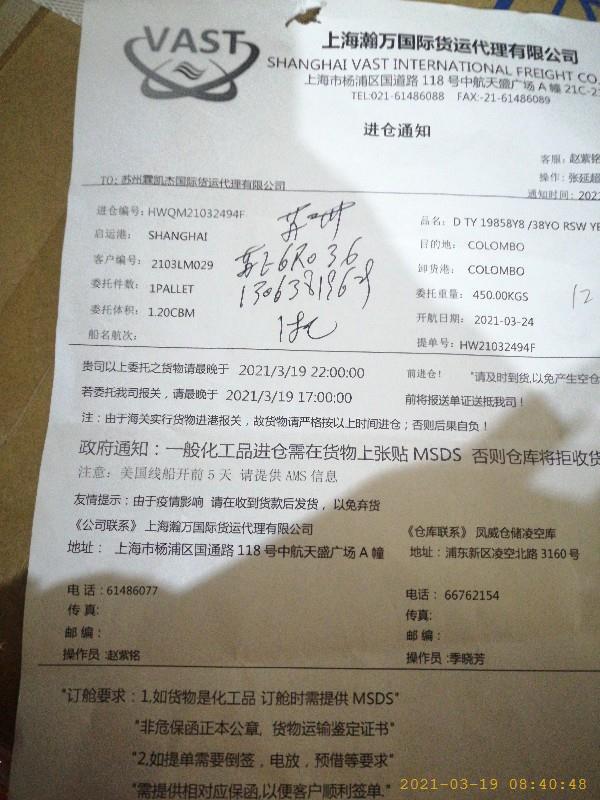 VAST
上海瀚万国际货运代理有限公司
SHANGHAI VAST INTERNATIONAL FREIGHT CO.
上海市杨浦区国道路 118 号中航天盛广场 A 幢 21C-2
TEL:021-61486088 FAX:-21-61486089
进仓通知
客服：赵紫铭
TO: 苏州霖凯杰国际货运代理有限公司
操作：张延超
通知时间：202
进仓编号：HWQM21032494F
品名：D TY 19858Y8 /38YO RSW YE
启运港： SHANGHAI
目的地： COLOMBO
客户编号： 2103LM029
苏E6R036
卸货港： COLOMBO
委托件数： 1PALLET
委托重量： 450.00KGS
12
委托体积： 1.20CBM
开航日期： 2021-03-24
船名航次：
提单号：HW21032494F
贵司以上委托之货物请最晚于 2021/3/19 22:00:00 前进仓！ "请及时到货,以免产生空仓
若委托我司报关，请最晚于 2021/3/19 17:00:00 前将报送单证送抵我司！
注：由于海关实行货物进港报关，故货物请严格按以上时间进仓；否则后果自负！
政府通知：一般化工品进仓需在货物上张贴 MSDS 否则仓库将拒收货
注意：美国线船开前 5 天 请提供 AMS 信息
友情提示：由于疫情影响 请在收到货款后发货，以免弃货
《公司联系》上海瀚万国际货运代理有限公司
《仓库联系》 凤威仓储凌空库
地址： 上海市杨浦区国通路 118 号中航天盛广场 A 幢
地址：浦东新区凌空北路 3160 号
电话：61486077
电话： 66762154
传真:
传真:
邮编：
邮编：
操作员:赵紫铭
操作员:季晓芳
"订舱要求：1,如货物是化工品 订舱时需提供 MSDS"
"非危保函正本公章，货物运输鉴定证书"
"2,如提单需要倒签，电放，预借等要求"
"需提供相对应保函,以便客户顺利签单."
2021-03-19 08:40:48